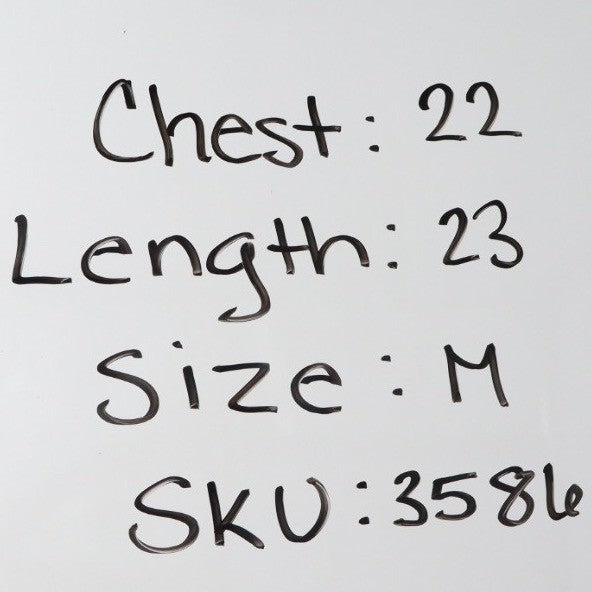 Chest: 22
Length: 23
Size: M
SKU: 3586